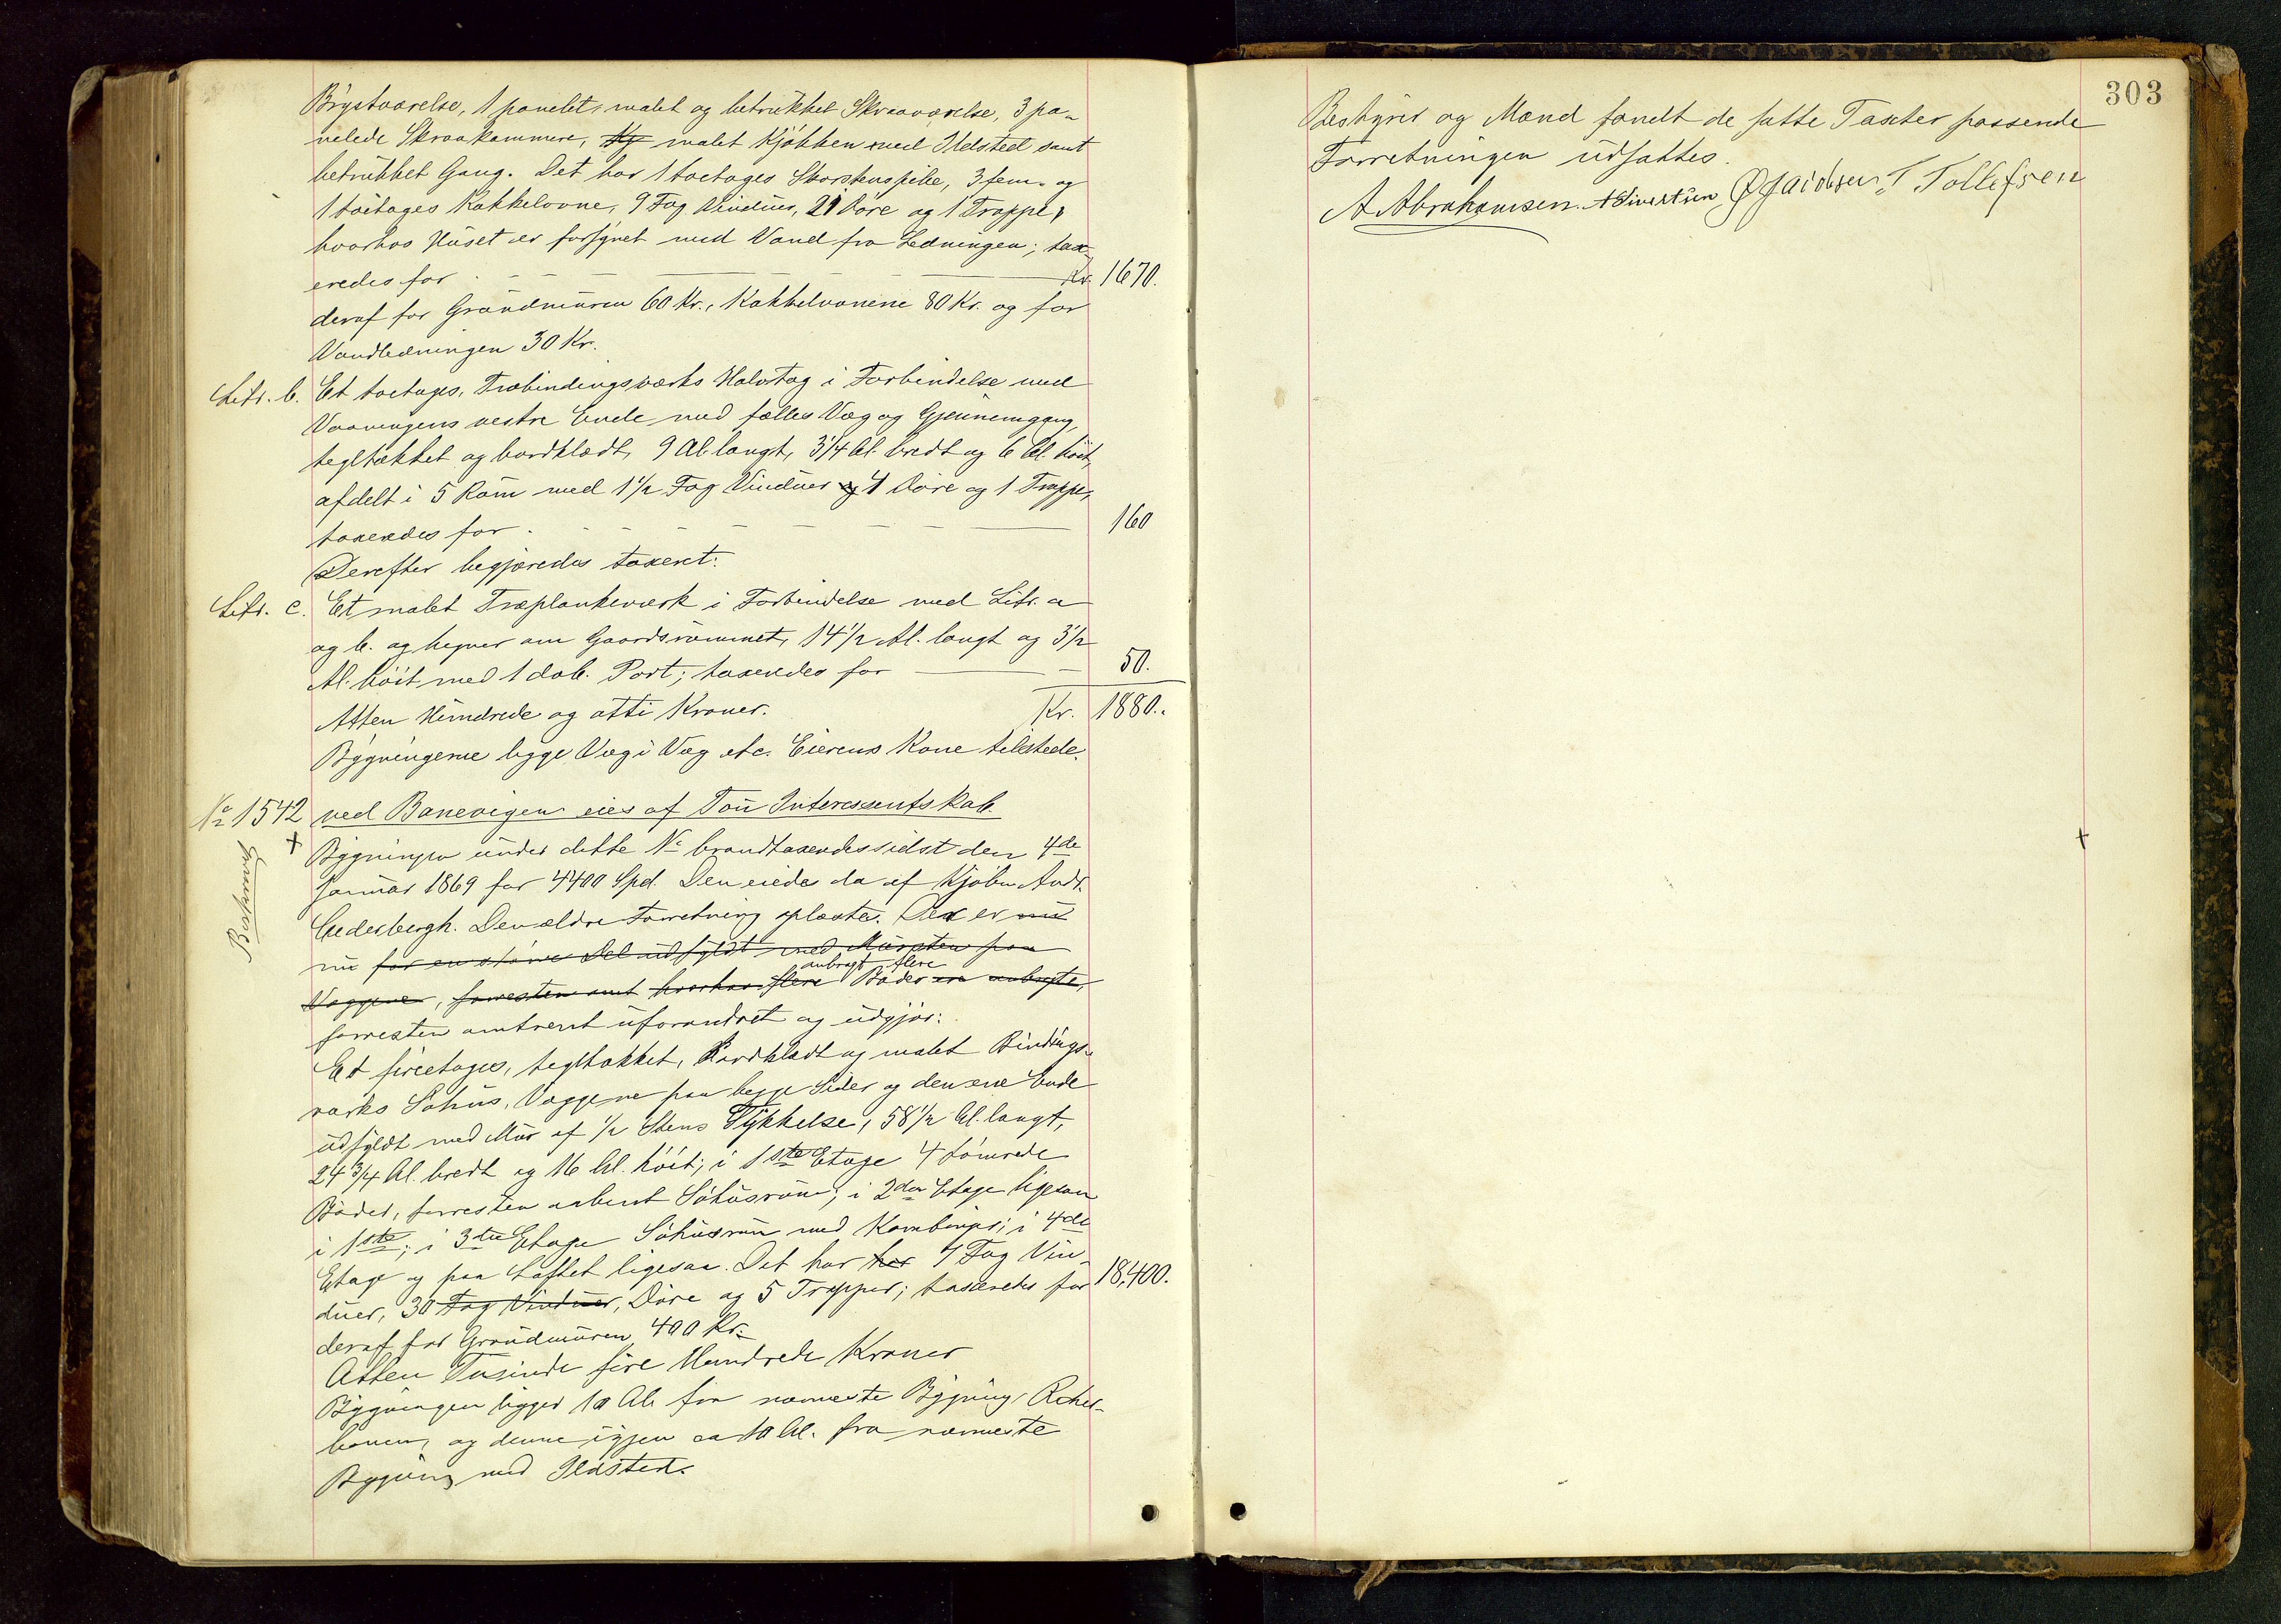 Brystværelse, 1 panelet, malet og betrukket Skraaværelse, 3 pa-
nelede Skraakammere, Kj malet Kjökken med Ildsted samt
betrukket Gang. Det har 1 toetages Skorstenspibe, 3 fem- og
1 toetages Kakkelovne, 9 Fag Vinduer, 21 Döre og 1 Trappe,
hvorhos Huset er forsynet med Vand fra Ledningen; tax-
eredes for Kr. 1670.
deraf for Grundmuren 60 Kr., Kakkelovnene 80 Kr. og for
Vandledningen 30 Kr.
Litr. b. Et toetages, Træbindingsværks Halvtag i Forbindelse med
Vaaningens vestre Ende med fælles Væg og Gjennemgang,
tegltækket og bordklædt, 9 Al. langt, 3 1/4 Al. bredt og 6 Al. höit,
afdelt i 5 Rum med 1 1/2 Fag Vinduer og 4 Döre og 1 Trappe,
taxeredes for 160
Derefter begjæredes taxeret:
Litr. c. Et malet Træplankeværk i Forbindelse med Litr. a
og b. og hegner om Gaardsrummet, 14 1/2 Al. langt og 3 1/2
Al. höit med 1 dob. Port; taxeredes for 50.
Atten Hundrede og otti Kroner. Kr. 1880.
Bygningerne ligge Væg i Væg etc. Eierens Kone tilstede.
No 1542 ved Banevigen eies af Tou Interessentskab.
Bygningen under dette No brandtaxeredes sidst den 4de
Januar 1869 for 4400 Spd. Den eiedes da af Kjöbm. Andr.
Cedesbergh. Den ældre Forretning oplæstes. Der er nu
nu for en större Del udfyldt med Mursten paa
anbragt flere
Væggene, forresten omt hvorhos flere Boder ere anbragte,
forresten omtrent uforandret og udgjör:
Et fireetages, tegltækket, Bordklædt og malet Bindings-
værks Söhus, Væggene paa begge Sider og den ene Ende
udfyldt med Mur af 1/2 Stens Tykkelse, 58 1/2 Al. langt,
24 3/4 Al. bredt og 16 Al. höit; i 1ste Etage 4 tömrede
Boder, forresten aabent Söhusrum; i 2den Etage ligesaa
i 1ste; i 3die Etage Söhusrum med Kornbinger; i 4de
Etage og paa Loftet ligesaa. Det har har 7 Fag Vin-
duer, 30 Fag Vinduer, Döre og 5 Trapper; taxeredes for 18,400.
deraf for Grundmuren 400 Kr.
Atten Tusinde fire Hundrede Kroner
Bygningen ligger 10 Al. fra nærmeste Bygning
og denne igjen ca 10 Al. fra nærmeste
Bygning med Ildsted.
303
Bestyrer og Mænd fandt de satte Taxter passende
Forretningen udsattes.
A Abrahamsen. A Sivertsen Ø Jacobsen T. Tollefsen